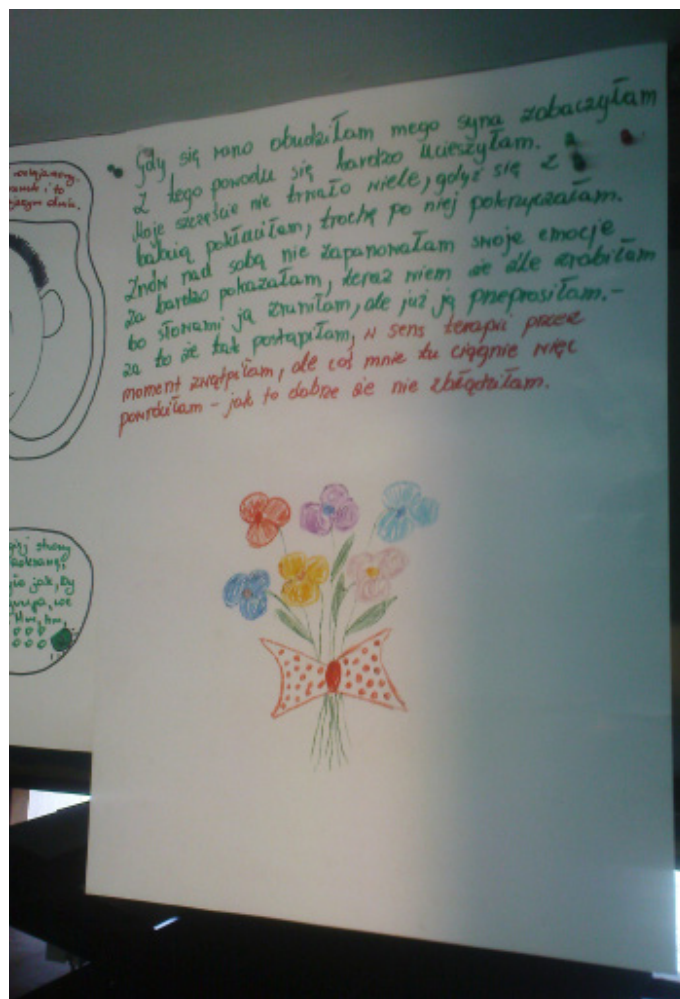 Gdy się rano obudziłam mego syna zobaczyłam
z tego powodu się bardzo ucieszyłam.
Moje szczęście nie trwało wiele, gdyż się z
babcią pokłuciłam, trochę po niej pokrzyczałam.
Znów nad sobą nie zapanowałam swoje emocje
za bardzo pokazałam, teraz wiem że źle zrobiłam
bo słowami ją zraniłam, ale już ją przeprosiłam. -
za to że tak postąpiłam, w sens terapii przez
moment zwątpiłam, ale coś mnie tu ciągnie więc
powróciłam - jak to dobrze że nie zbłądziłam.
strony
jak, by
we